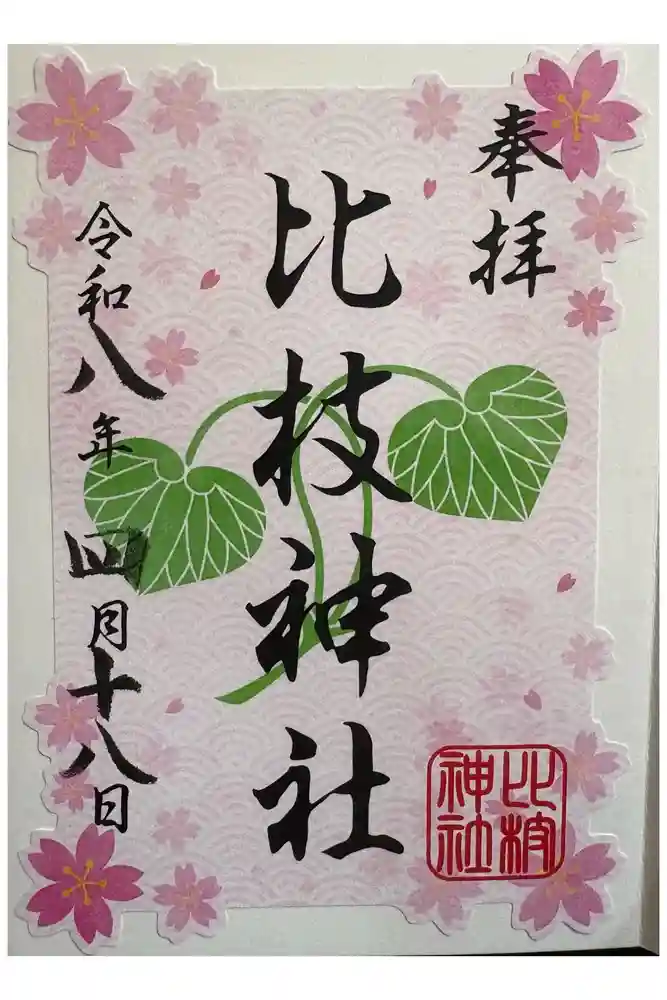 奉拝
比枝神社
比枝
神社
令和八年四月十八日